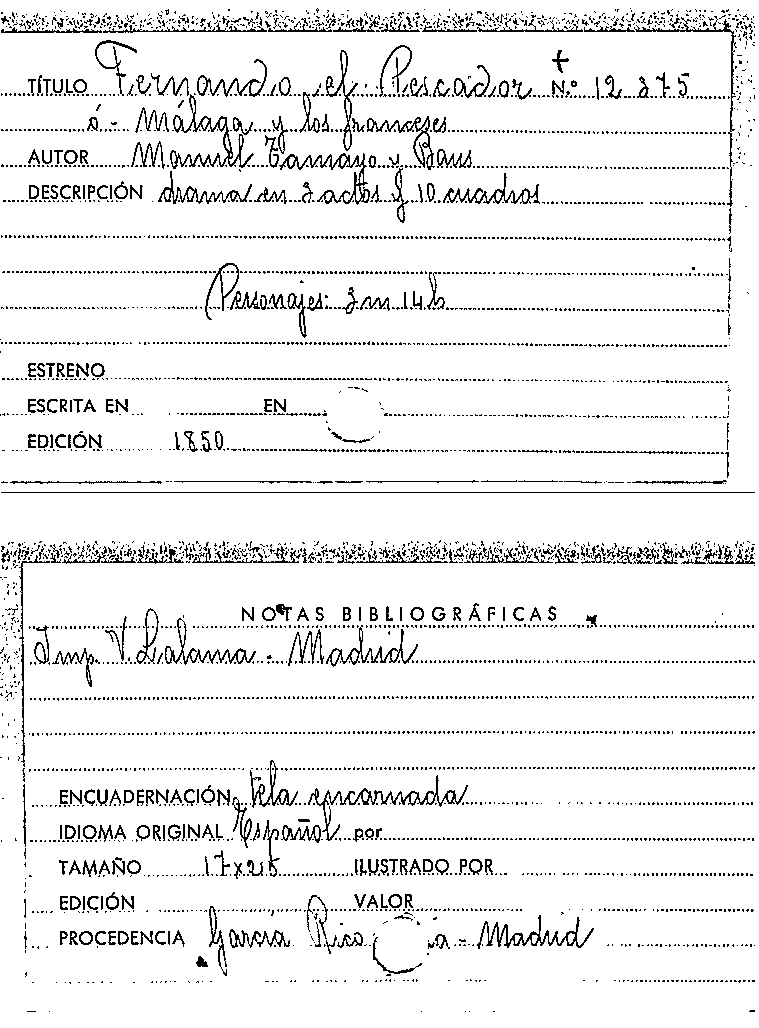 TÍTULO Fernando el Pescador N.º 12 375
ó - Málaga y los franceses
AUTOR Manuel Tamayo y Baus
DESCRIPCIÓN drama en 3 actos y 10 cuadros
Personajes: 3 m 14 h
ESTRENO
ESCRITA EN EN
EDICIÓN 1850
NOTAS BIBLIOGRÁFICAS
Imp. V. Lalama - Madrid
ENCUADERNACIÓN Tela encarnada
IDIOMA ORIGINAL Español por
TAMAÑO 17x25 ILUSTRADO POR
EDICIÓN VALOR
PROCEDENCIA García Rico - Madrid